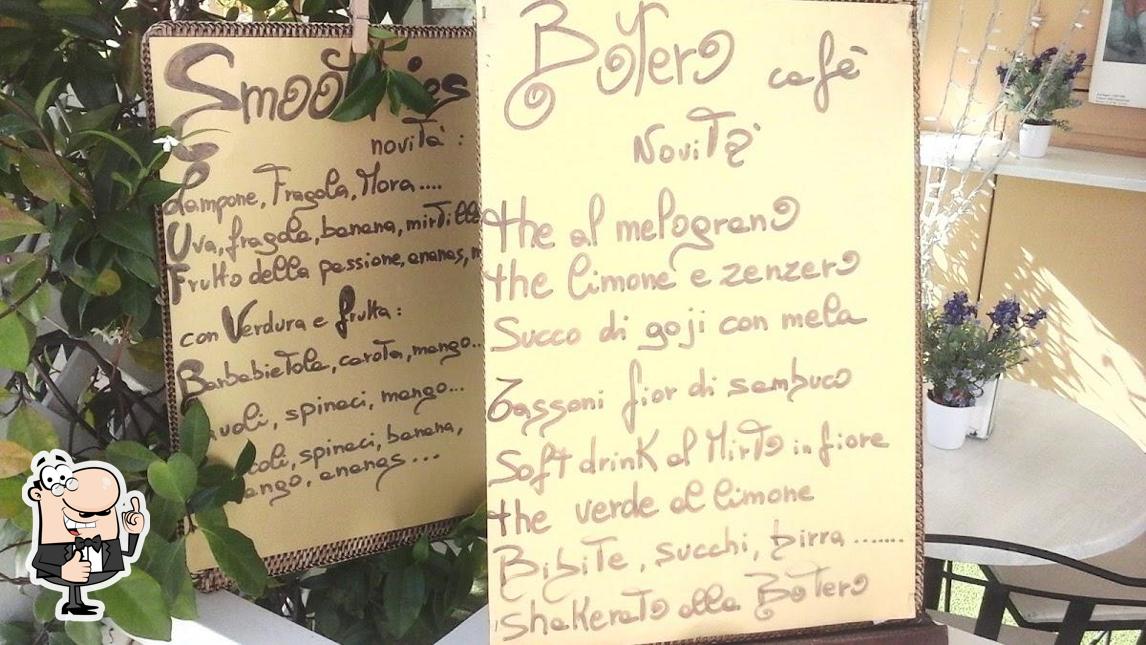 Smoothies
novità :
Lampone, Fragola, Mora....
Uva, fragola, banana, mirtill
Frutto della passione, ananas, m
con Verdura e frutta :
Barbabietola, carota, mango..
avoli, spinaci, mango...
coli, spinaci, banana,
ango, ananas...
Botero
cafè
Novità
the al melograno
the limone e zenzero
Succo di goji con mela
Tassoni fior di sambuco
Soft drink al Mirto in fiore
the verde al limone
Bibite, succhi, birra .......
Shakerato alla Botero